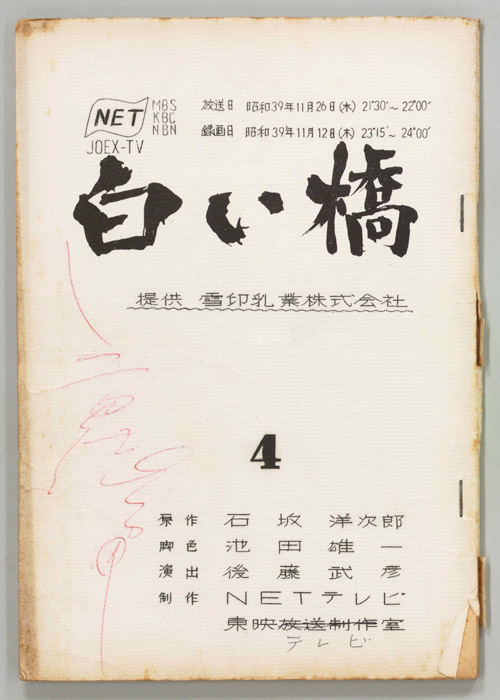 NET
JOEX-TV
MBS
KBC
NBN
放送日 昭和39年11月26日(木) 21°30'～22°00'
録画日 昭和39年11月12日(木) 23°15'～24°00'
白い橋
提供 雪印乳業株式会社
4
原作 石坂洋次郎
脚色 池田雄一
演出 後藤武彦
制作 NETテレビ
東映放送制作室
テレビ